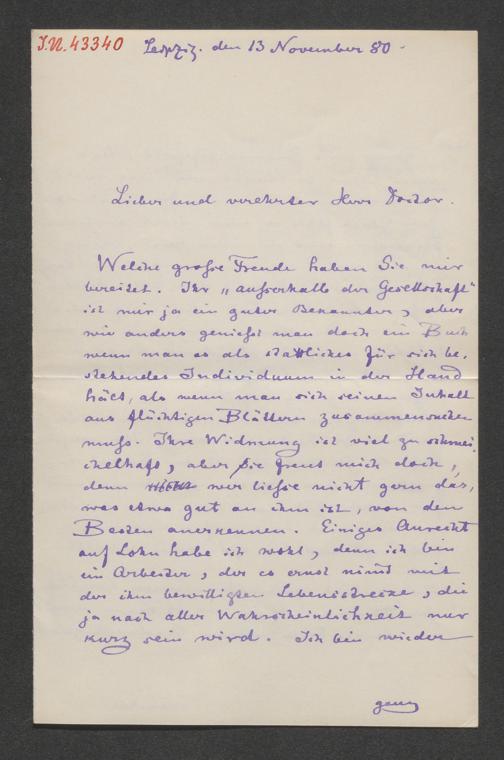 I.N. 43340
Leipzig. den 13 November 80.
Lieber und verehrter Herr Doctor.
Welche große Freude haben Sie mir
bereitet. Ihr „außerhalb der Gesellschaft"
ist mir ja ein guter Bekannter, aber
wie anders genießt man doch ein Buch
wenn man es als stattliches für sich be-
stehendes Individuum in der Hand
hält, als wenn man sich seinen Inhalt
aus flüchtigen Blättern zusammensuchen
muß. Ihre Widmung ist viel zu schmei-
chelhaft, aber sie freut mich doch,
denn wer ließe nicht gern das,
was etwa gut an ihm ist, von den
Besten anerkennen. Einiges Anrecht
auf Lohn habe ich wohl, denn ich bin
ein Arbeiter, der es ernst nimt mit
der ihm bewilligten Lebensstrecke, die
ja nach aller Wahrscheinlichkeit nur
kurz sein wird. Ich bin wieder
ganz